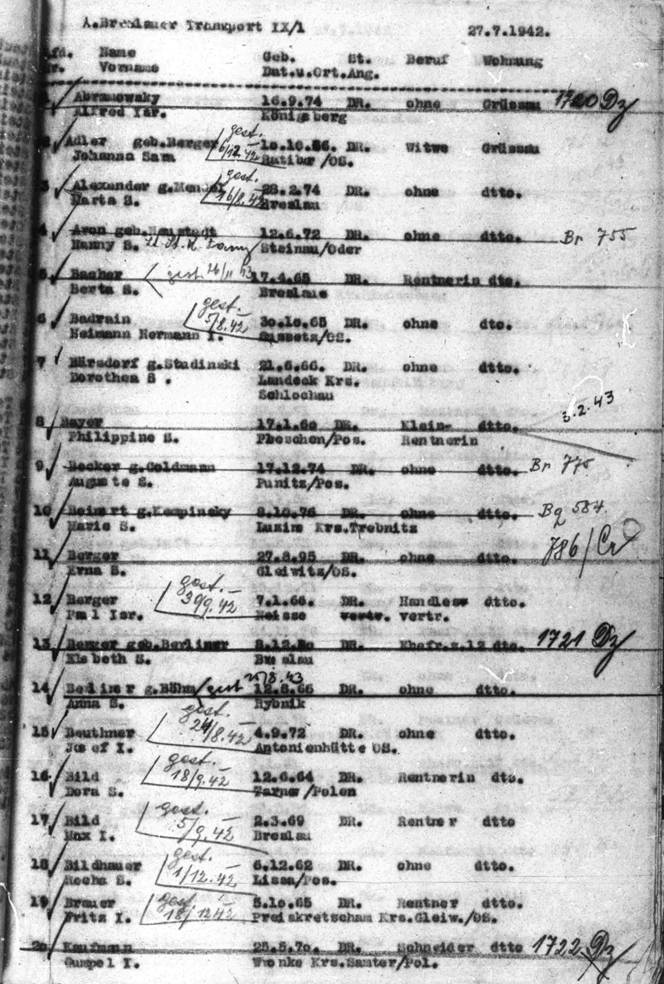 A.Breslauer Transport IX/1 27.7.1942.
Name Geb. St. Beruf Wohnung
Vorname Dat.u.Ort.Ang.
Abramowsky 16.9.74 DR. ohne Grüssau 1720 Dz
Alfred Isr. Königsberg
Adler geb.Berger gest. 6/12.42 DR. Witwe Grüssau
Johanna Sara Ratibor/OS.
3 Alexander g.Mendel gest. 28.2.74 DR. ohne dtto.
Marta S. 16/8.42 Breslau
4 Aron geb.Neustadt 12.6.72 DR. ohne dtto. Br 755
Nanny S. Steinau/Oder
5 Bacher gest. 17.4.65 DR. Rentnerin dto.
Berta S. Breslau
6 Badrain gest. 5/8.42 30.10.65 DR. ohne dto.
Heimann Hermann I.
7 Bärsdorf g.Studinski 21.6.66. DR. ohne dtto.
Dorothea S . Landeck Krs.
Schlochau
8 Bayer 17.1.60 DR. Klein- dtto. 3.2.43
Philippine S. Pleschen/Pos. Rentnerin
9 Becker g.Goldmann 17.12.74 DR. ohne dtto. Br 775
Auguste S. Punitz/Pos.
10 g.Kempinsky 8.10.76 DR. ohne dtto. Bq 584.
Marie S. Luzin Krs.Trebnitz
11 Berger 27.8.95 DR. ohne dtto. 786/Cr
Erna S. Gleiwitz/OS.
12 Berger gest. 30/9.42 7.1.66. DR. Handles- dtto.
Paul Isr. Neisse vertr. vertr.
13 Berger geb.Berliner DR. Ehefr.z.12 dto. 1721 Dz
Elsbeth S. Breslau
14 Berliner g.Böhm gest 25/8.43 12.8.66 DR. ohne dtto.
Anna S. Rybnik
15 Beuthner gest. 24/8.42 4.9.72 DR. ohne dtto.
Josef I. Antonienhütte OS.
16 Bild gest. 18/9.42 12.6.64 DR. Rentnerin dto.
Dora S. /Polen
17 Bild gest. 5/9.42 2.3.69 DR. Rentner dtto
Max I. Breslau
18 Bildhauer gest. 1/12.42 6.12.62 DR. ohne dtto.
Rocha S. Lissa/Pos.
19 Brauer gest. 18/12 42 5.10.65 DR. Rentner dtto.
Fritz I. Preiskretscham Krs.Gleiw./OS.
20 Kaufmann 25.5.70. DR. Schneider dtto 1722 Dz
Gumpel I. Wronke Krs.Samter/Pol.